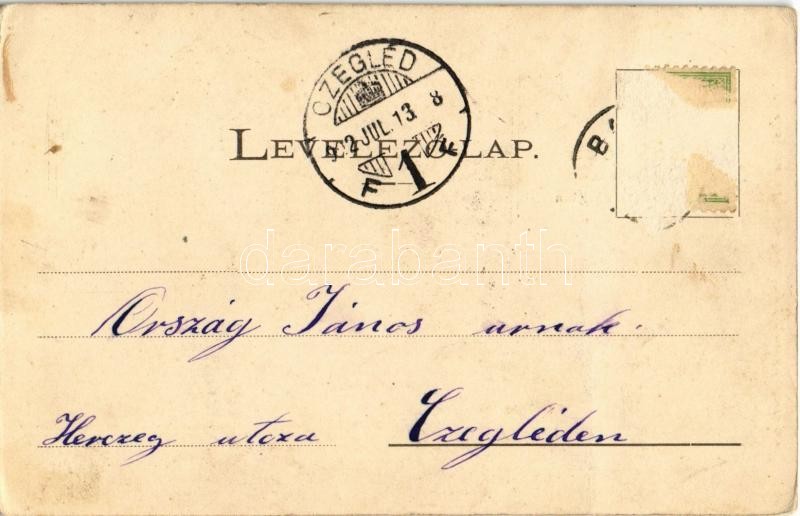 CZEGLÉD
902 JUL. 13. 8
F 1 F
LEVELEZŐ-LAP.
B
darabanth
Ország János urnak.
Herczeg utcza
Czegléden